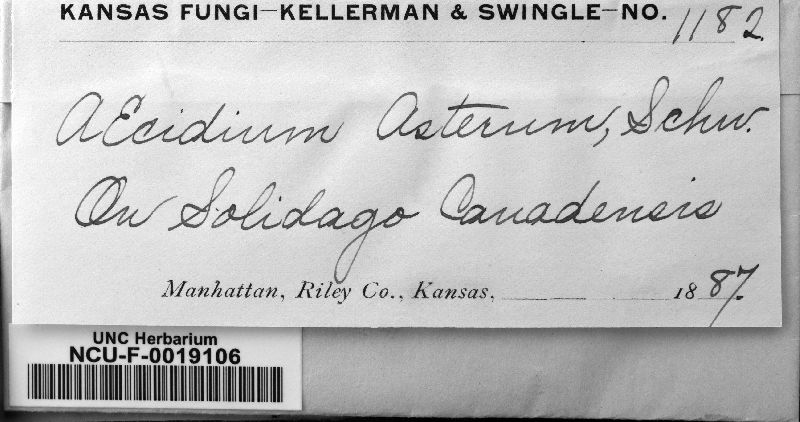 KANSAS FUNGI—KELLERMAN & SWINGLE—NO. 1182.
AEcidium Asterum, Schw.
On Solidago Canadensis
Manhattan, Riley Co., Kansas, 1887.
UNC Herbarium
NCU-F-0019106